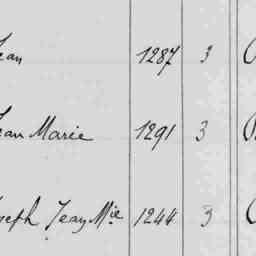 Jean 1287 3
Jean Marie 1291 3
Joseph Jean Mie 1244 3